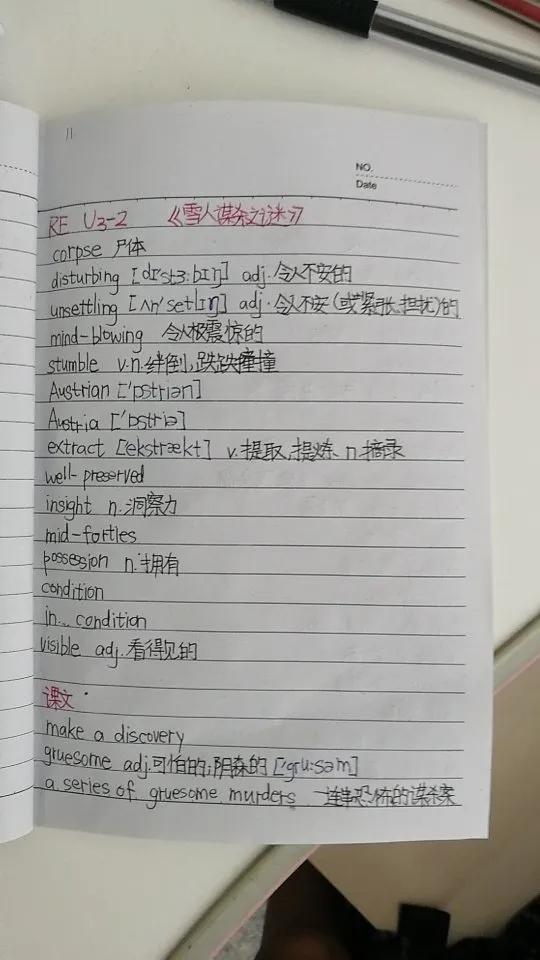 11.
NO.
Date
RE U3-2 《雪人谋杀之谜》
corpse 尸体
disturbing [dɪ'stɜ:bɪŋ] adj. 令人不安的
unsettling [ʌn'setlɪŋ] adj. 令人不安(或紧张、担扰)的
mind-blowing 令人极震惊的
stumble v.n. 绊倒,跌跌撞撞
Austrian ['ɒstriən]
Austria ['ɒstriə]
extract [ekstrækt] v.提取,提炼、n.摘录
well-preserved
insight n.洞察力
mid-forties
possession n.拥有
condition
in... condition
visible adj.看得见的
课文·
make a discovery
gruesome adj.可怕的;阴森的 ['gru:səm]
a series of gruesome murders 一连串恐怖的谋杀案